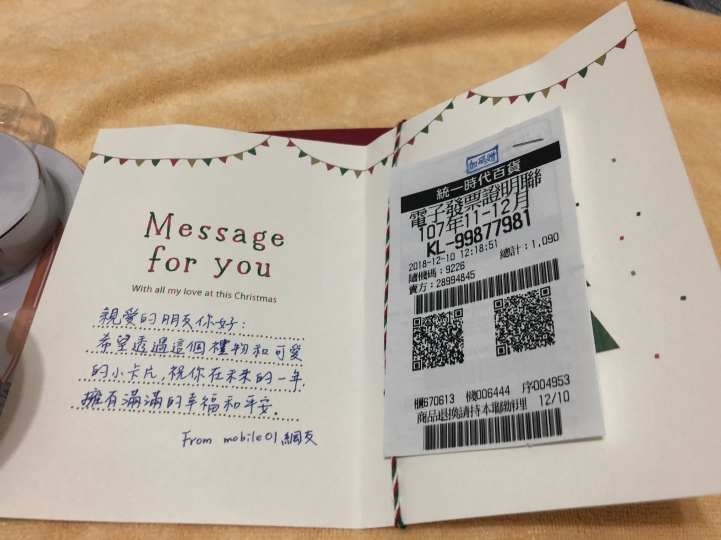 Message
for you
With all my love at this Christmas
親愛的朋友你好:
希望透過這個禮物和可愛
的小卡片,祝你在未來的一年
擁有滿滿的幸福和平安。
From mobile01網友
統一時代百貨
電子發票證明聯
107年11-12月
KL-99877981
2018-12-10 12:18:51
隨機碼:9226 總計:1,090
賣方:28994845
櫃670613 機006444 序004953
商品退換請持本聯辦理 12/10